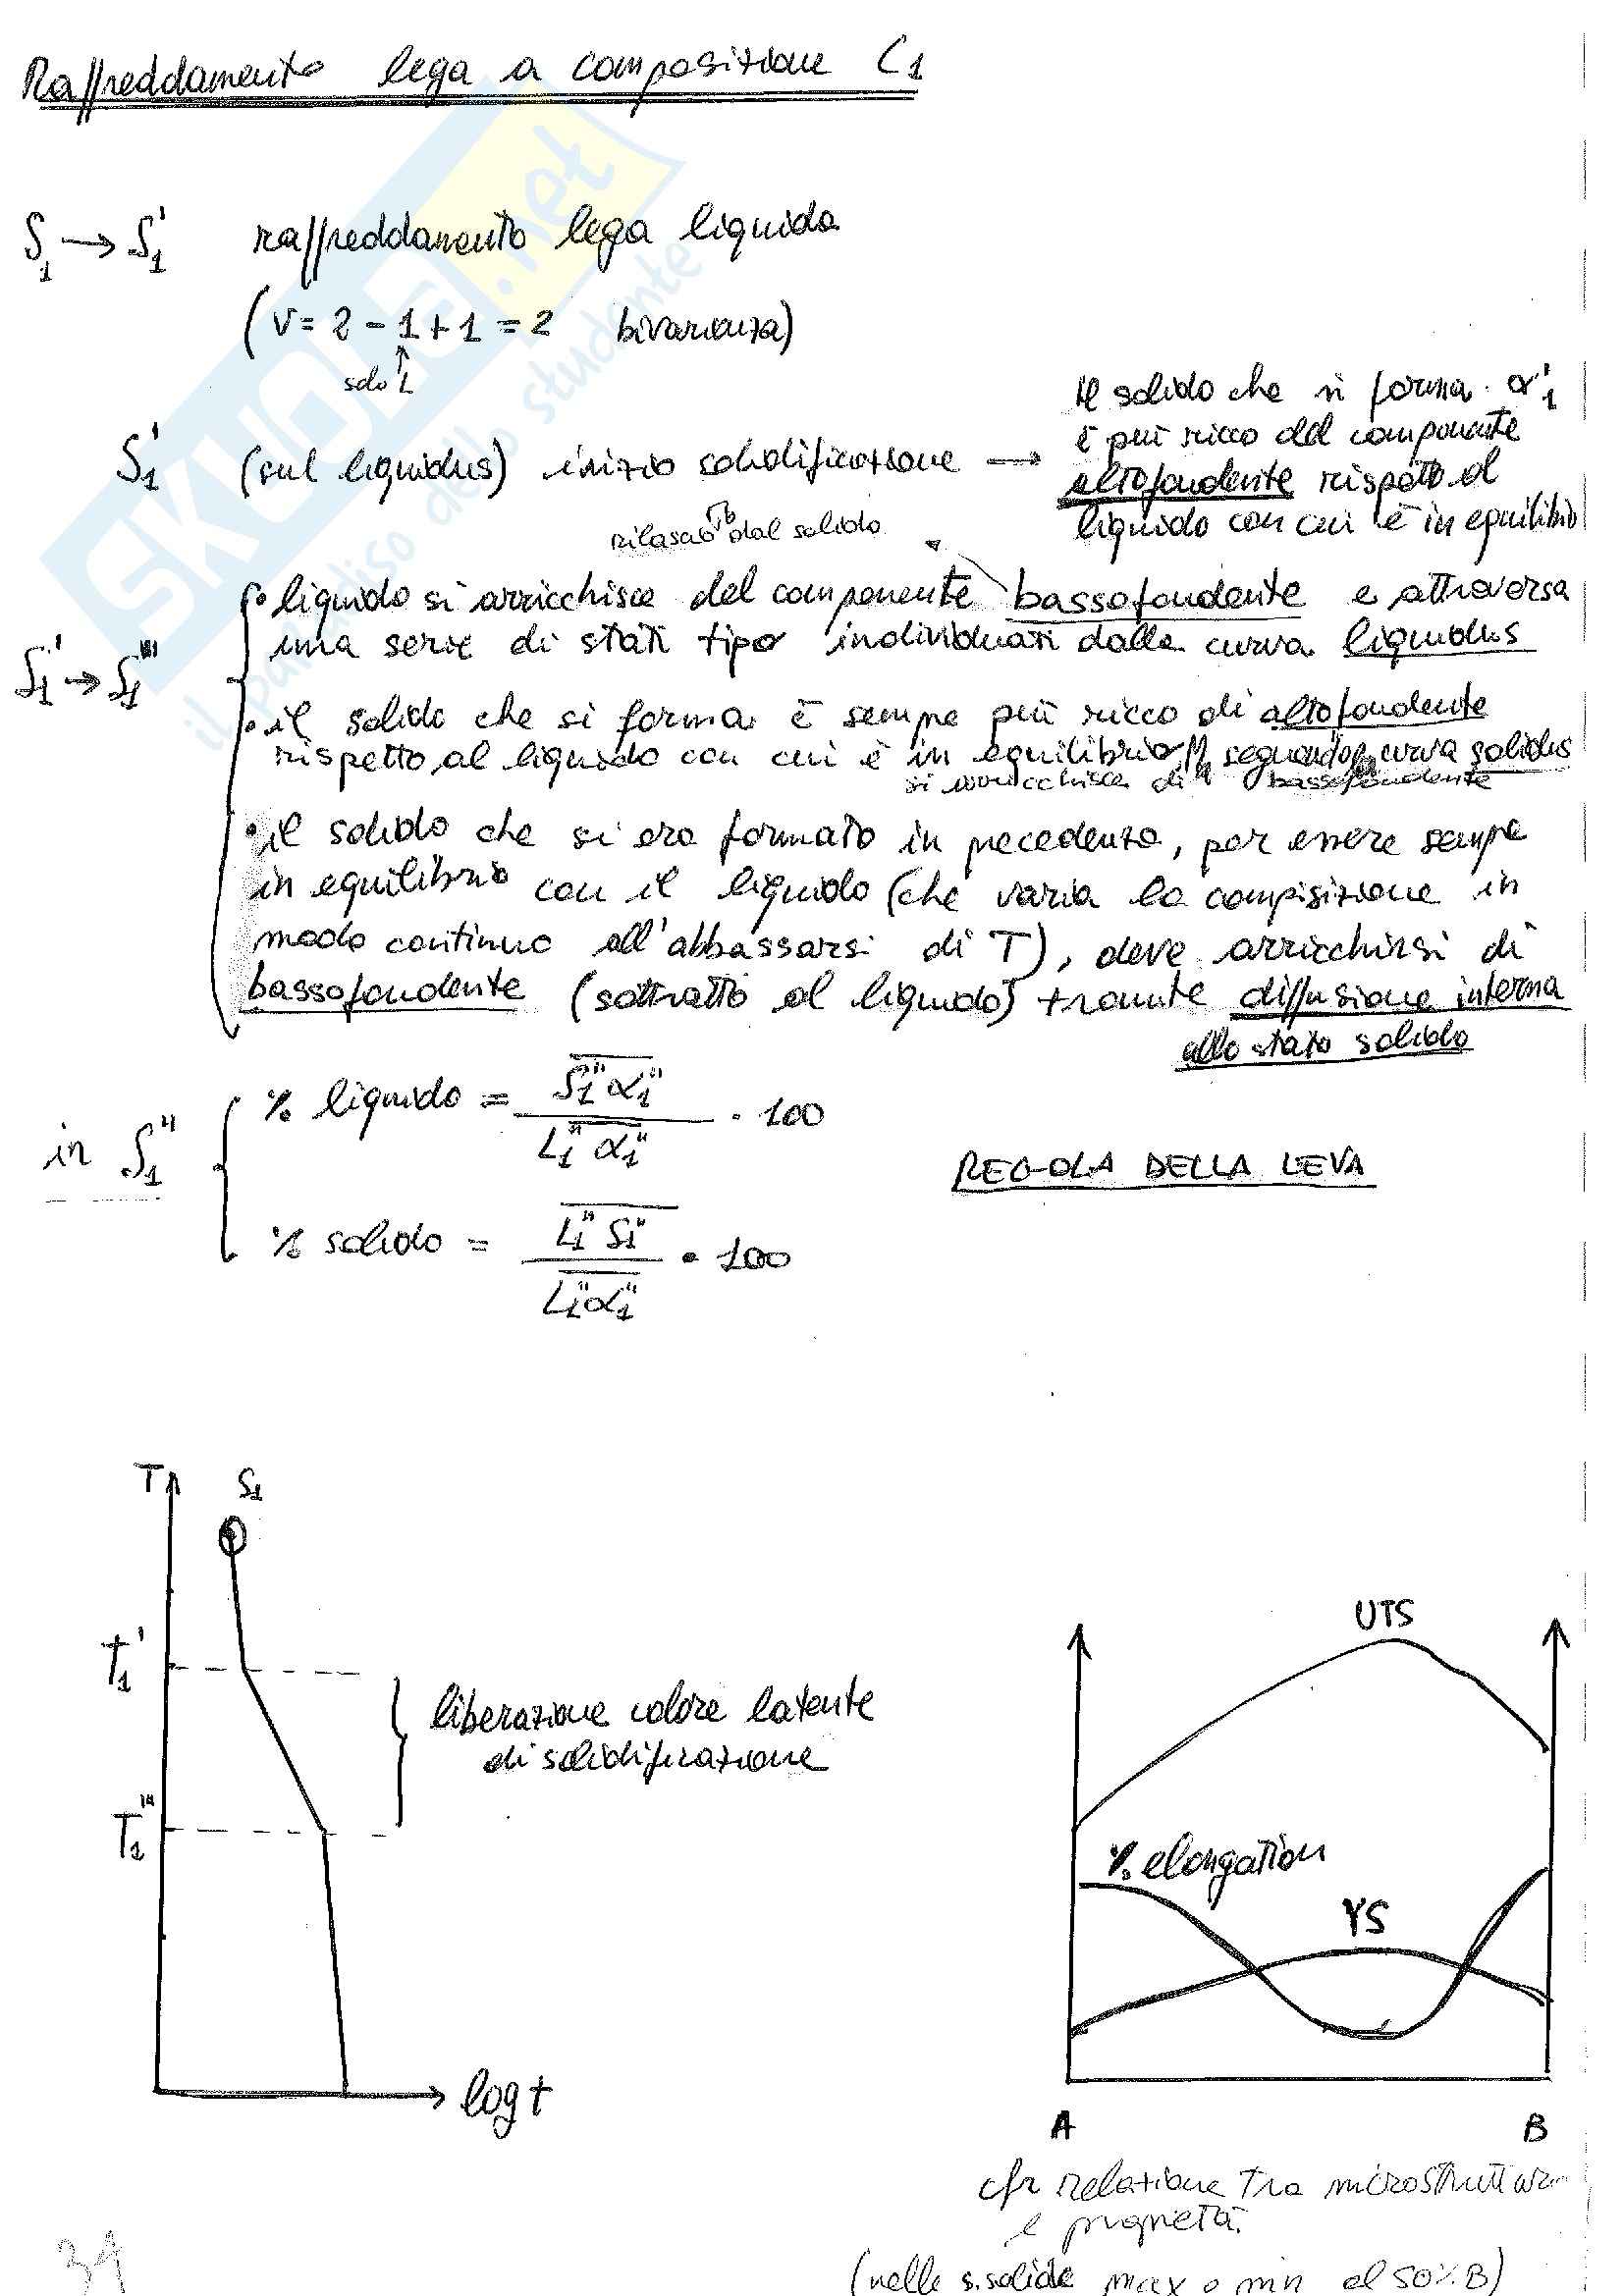 Raffreddamento lega a composizione C1
S1 → S1' raffreddamento lega liquida
(V = 2 - 1 + 1 = 2 bivarianza)
solo L
S1' (sul liquidus) inizio solidificazione → Il solido che si forma α1'
è più ricco del componente
altofondente rispetto al
liquido con cui è in equilibrio
rilasciato dal solido
S1' → S1'''
• liquido si arricchisce del componente bassofondente e attraversa
una serie di stati tipo individuati dalla curva liquidus
• il solido che si forma è sempre più ricco di altofondente
rispetto al liquido con cui è in equilibrio, seguendo curva solidus
si arricchisce di bassofondente
• il solido che si era formato in precedenza, per essere sempre
in equilibrio con il liquido (che varia la compisizione in
modo continuo all'abbassarsi di T), deve arricchirsi di
bassofondente (sottratto al liquido) tramite diffusione interna
allo stato solido
in S1''
% liquido = S1'' α1'' / L1'' α1'' · 100
REGOLA DELLA LEVA
% solido = L1'' S1'' / L1'' α1'' · 100
T S1
T1'
liberazione calore latente
di solidificazione
T1'''
log t
UTS
% elongation
YS
A B
cfr relazione tra
e proprietà
(nelle s. solide max o min al 50% B)
34
SKUOLA.net
il paradiso dello studente